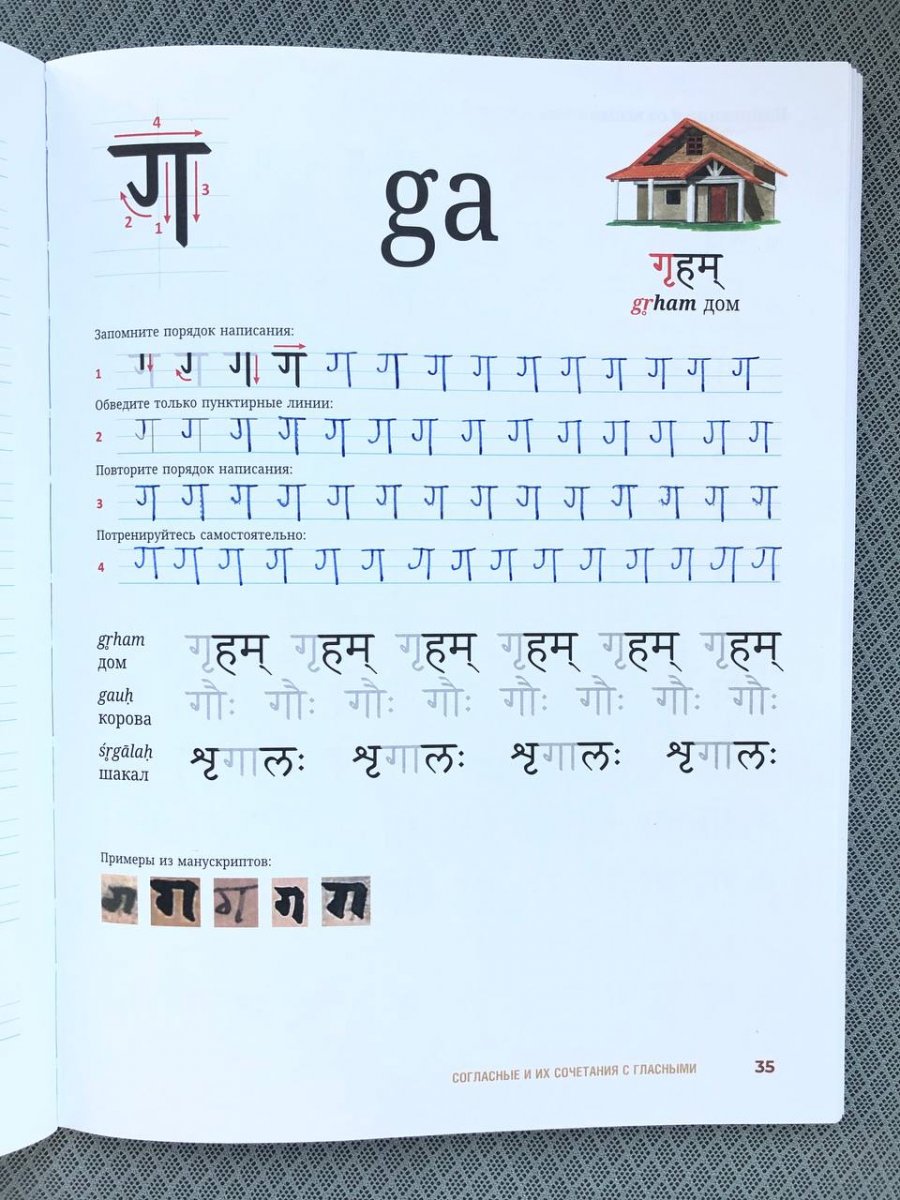 4
ग ga
3
2
1
गृहम्
gr̥ham дом
Запомните порядок написания:
1 ग ग ग ग ग ग ग ग ग ग ग ग ग ग
Обведите только пунктирные линии:
2 ग ग ग ग ग ग ग ग ग ग ग ग ग ग
Повторите порядок написания:
3 ग ग ग ग ग ग ग ग ग ग ग ग ग ग
Потренируйтесь самостоятельно:
4 ग ग ग ग ग ग ग ग ग ग ग ग ग ग ग
gr̥ham गृहम् गृहम् गृहम् गृहम् गृहम् गृहम्
дом
gauḥ गौः गौः गौः गौः गौः गौः गौः गौः
корова
śr̥gālaḥ शृगालः शृगालः शृगालः शृगालः
шакал
Примеры из манускриптов:
ग ग ग ग ग
СОГЛАСНЫЕ И ИХ СОЧЕТАНИЯ С ГЛАСНЫМИ 35